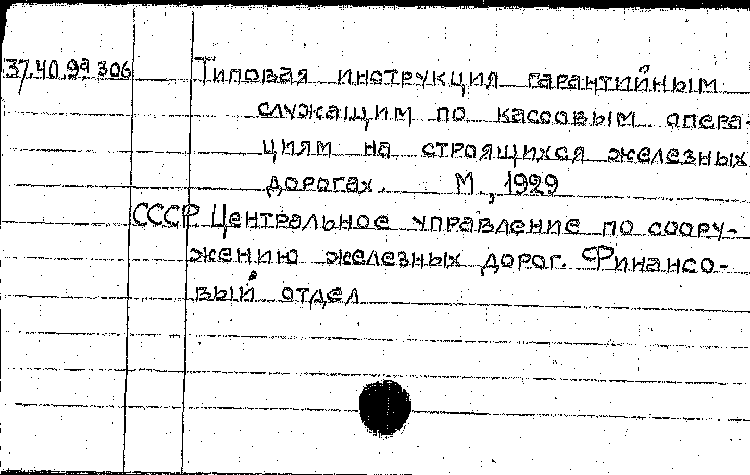 37.40.99 306 Типовая инструкция гарантийным
служащим по кассовым опера-
циям на строящихся железных
дорогах. М., 1929
СССР. Центральное управление по соору-
жению железных дорог. Финансо-
вый отдел